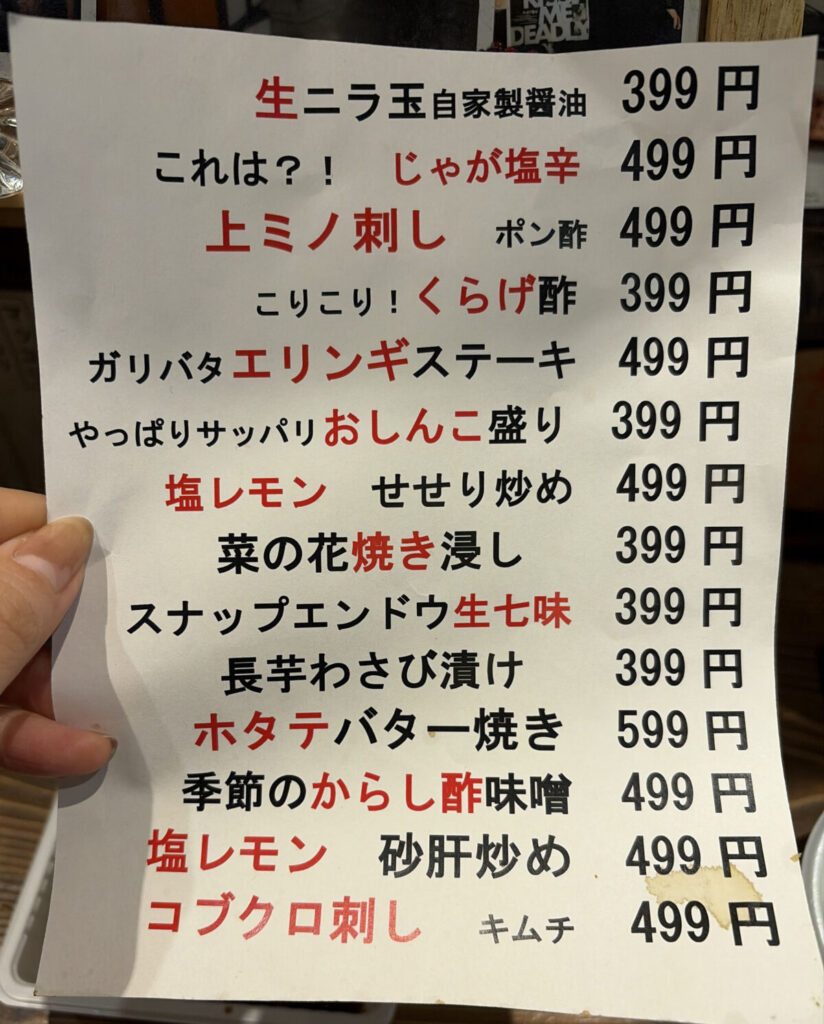 ME
DEADLY
生ニラ玉自家製醤油 399円
これは？！ じゃが塩辛 499円
上ミノ刺し ポン酢 499円
こりこり！くらげ酢 399円
ガリバタエリンギステーキ 499円
やっぱりサッパリおしんこ盛り 399円
塩レモン せせり炒め 499円
菜の花焼き浸し 399円
スナップエンドウ生七味 399円
長芋わさび漬け 399円
ホタテバター焼き 599円
季節のからし酢味噌 499円
塩レモン 砂肝炒め 499円
コブクロ刺し キムチ 499円